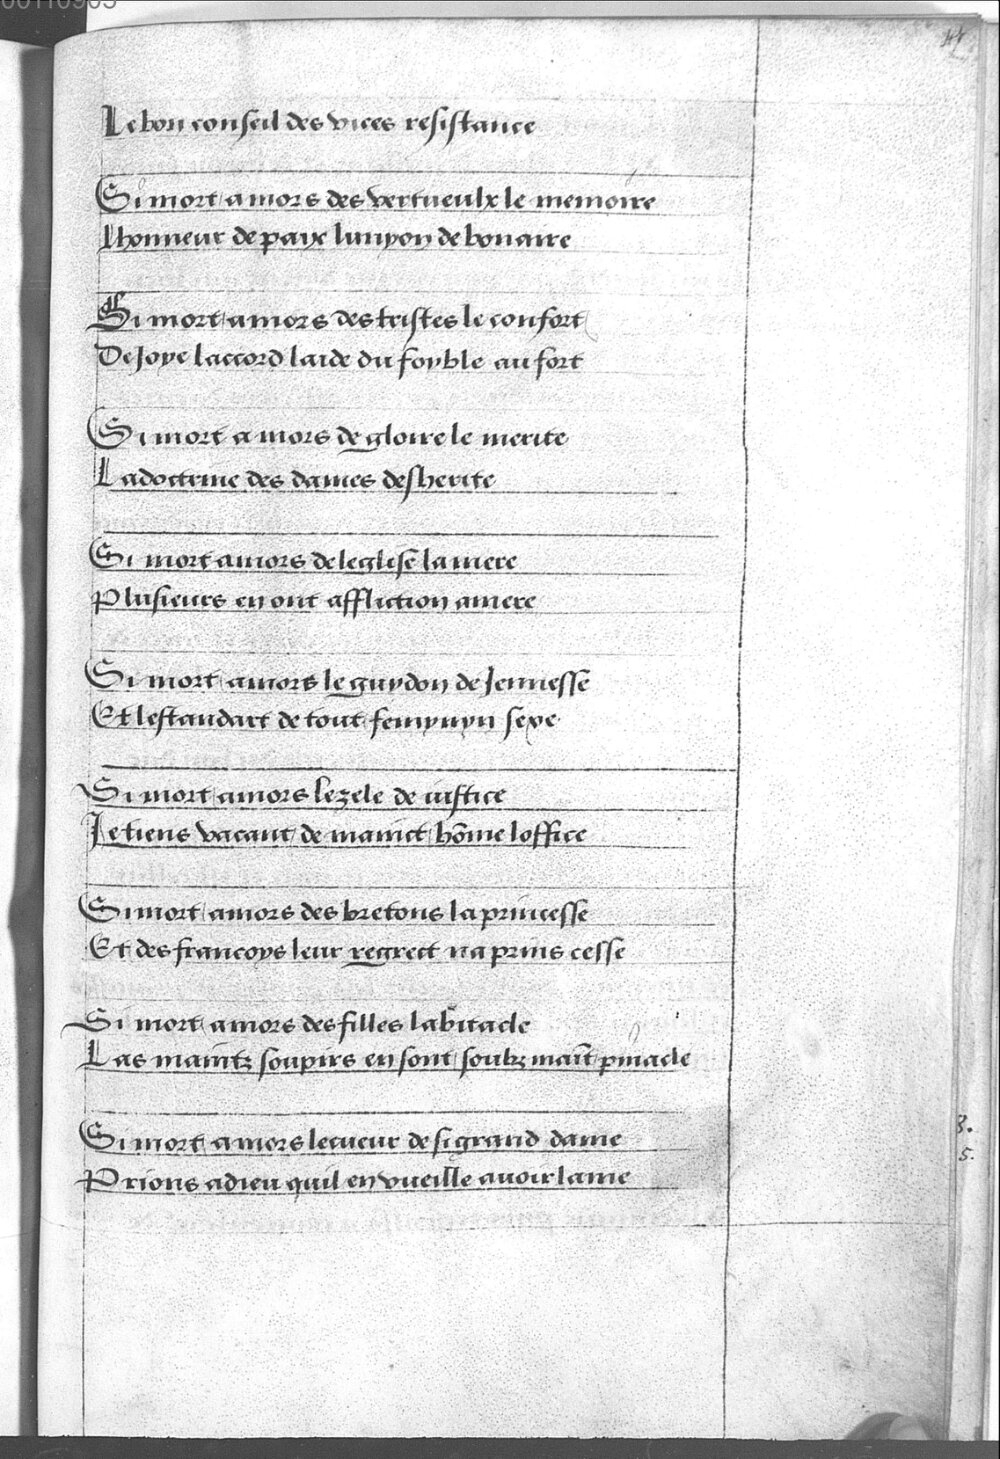 00110903
44
Le bon conseil des vices resistance
Si mort a mors des vertueulx le memoire
Lhonneur de paix lunyon debonaire
Si mort a mors des tristes le confort
De Joye laccord laide du foyble au fort
Si mort a mors de gloire le merite
La doctrine des dames desherite
Si mort a mors de leglise la mere
Plusieurs en ont affliction amere
Si mort a mors le guydon de Jennesse
Et lestandart de tout femynyn sexe
Si mort a mors le zele de iustice
Je tiens vacant de mainct hōme loffice
Si mort a mors des bretons la princesse
Et des francoys leur regrect na prins cesse
Si mort a mors des filles labitacle
Las maintz soupirs en sont soubz mait̄ pinacle
Si mort a mors le cueur de si grand dame
Prions a dieu quil en vueille avoir lame
3.
5.